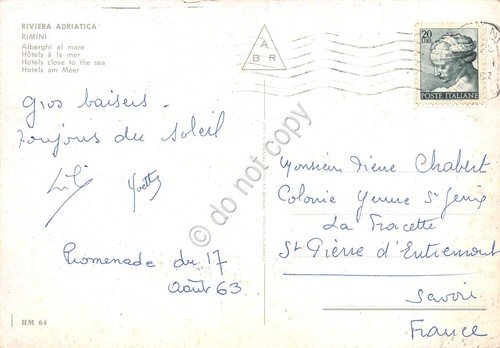 RIVIERA ADRIATICA
RIMINI
Alberghi al mare
Hôtels à la mer
Hotels close to the sea
Hotels am Meer
A
B R
20
LIRE
POSTE ITALIANE
Gros baisers -
toujours du soleil
Lili Yvette
Promenade du 17
août 63
Monsieur Chabert
Colonie Yenne St Genix
La
St Pierre d'Entremont
Savoie
France
RM 64
do not copy